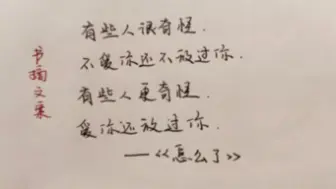 书摘文案
有些人很奇怪.
不爱你还不放过你.
有些人更奇怪.
爱你还放过你.
——《怎么了》